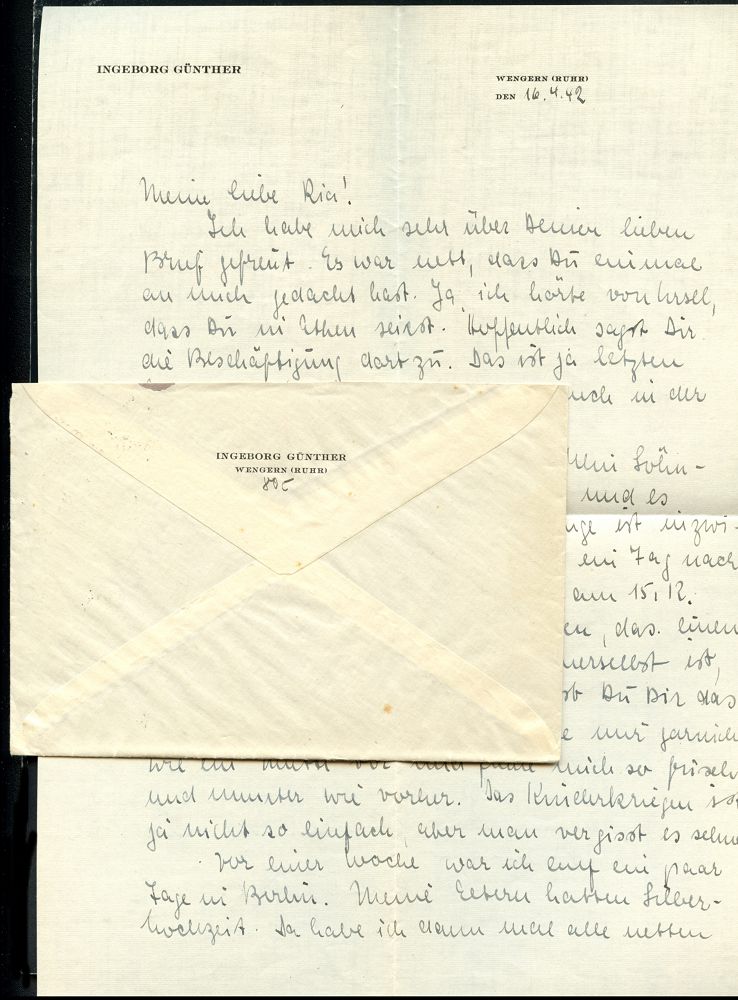 INGEBORG GÜNTHER
WENGERN (RUHR)
DEN 16.4.42
Meine liebe Ria!
Ich habe mich sehr über Deinen lieben
Brief gefreut. Es war nett, dass Du einmal
an mich gedacht hast. Ja, ich hörte von Ursel,
dass Du in seist. Hoffentlich sagt Dir
die Beschäftigung dort zu. Das ist ja letzten
auch in der
INGEBORG GÜNTHER
WENGERN (RUHR)
Mein Söhn-
und es
ist inzwi-
ein Tag nach
am 15.12.
das einen
ist,
ob Du Dir das
mir garnich
wie ein vor und mich so frisch
und munter wie vorher. Das Kinderkriegen ist
ja nicht so einfach, aber man vergisst es schne
Vor einer Woche war ich auf ein paar
Tage in Berlin. Meine Eltern hatten Silber-
hochzeit. Da habe ich dann mal alle netten